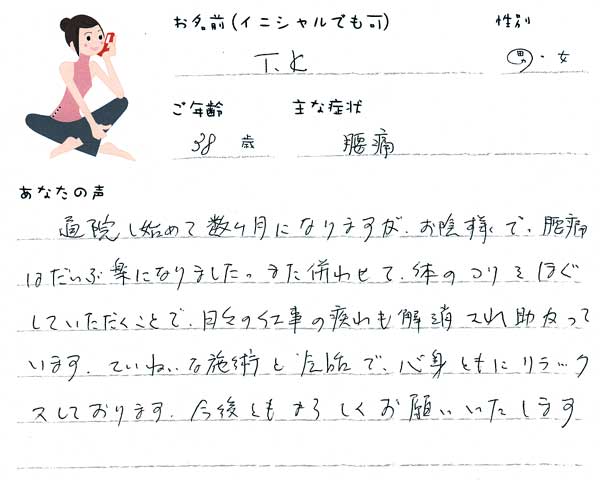 お名前(イニシャルでも可) 性別
T.K 男・女
ご年齢 主な症状
38 歳 腰痛
あなたの声
通院し始めて数ヶ月になりますが、お陰様で、腰痛
はだいぶ楽になりました。また併わせて、体のコリをほぐ
していただくことで、日々の仕事の疲れも解消され助かって
います。ていねいな施術と で、心身ともにリラック
スしております。今後ともよろしくお願いいたします